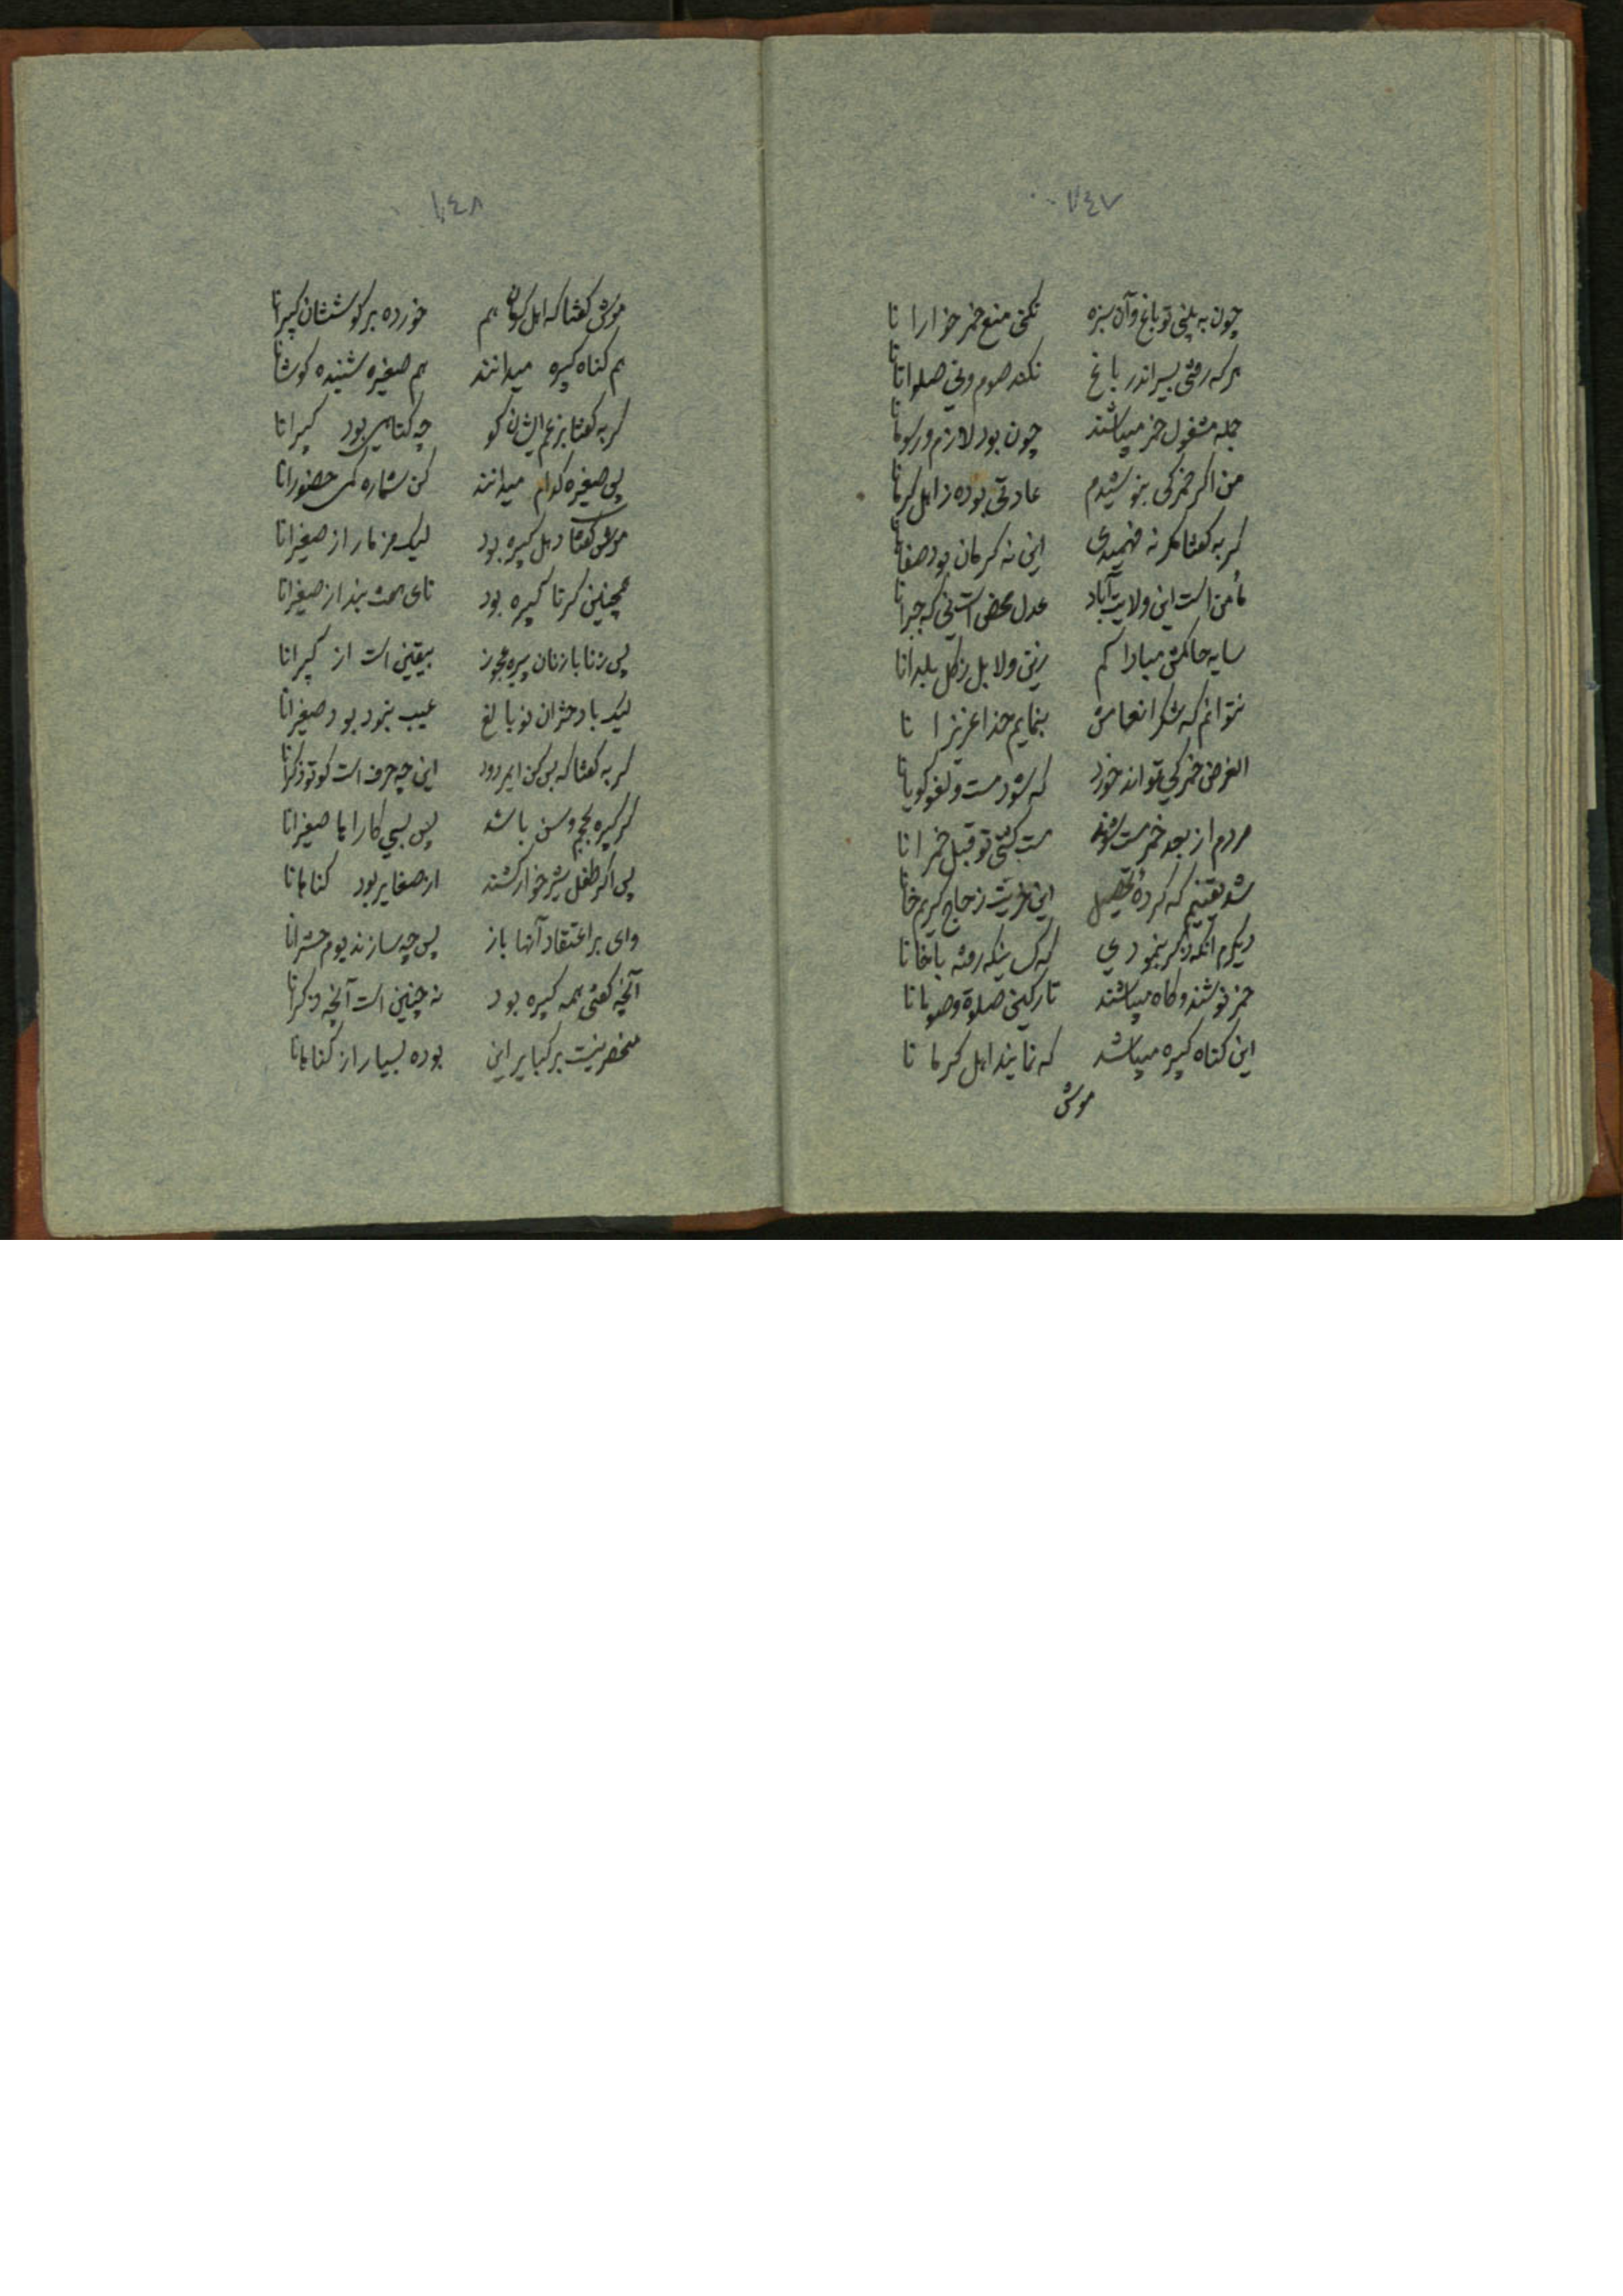 ۱۴۷
چون به بینی تو باغ و آن سبزه نکنی منع خمر خوارا نا
هر که رفتی بسیر اندر باغ نکند صوم و نی صلواتانا
جمله مشغول خمر میباشند چون بود لازم و رسومانا
من اگر خمرکی بنوشیدم عادتی بوده ز اهل کرمانا
گربه گفتا مگر نه فهمیدی این نه کرمان بود صفاهانا
مأمن است این ولایت آباد عدل محض است نی که جبرانا
سایه حاکمش مبادا کم زین ولا بل ز کل بلدانا
نتوانم که شکر انعامش بنمایم خدا عزیز ا نا
الغرض خمر کی تواند خورد که شود مست و لغو گویانا
مردم از بعد خمر مست شوند مست گشتی تو قبل خمر انا
شد یقینم که کردهٔ تحصیل این طریقت ز حاج کریم خانا
دیگرم آنکه ذکر بنمودی که کسانیکه رفته باغانا
خمر نوشند و گاه میباشند تارکین صلوة و صومانا
این گناه کبیره میباشد که نمایند اهل کرما نا
موش
۱۴۸
موش گفتا که اهل کرمان هم خورده بر گوششان کبیرانا
هم گناه کبیره میدانند هم صغیره شنیده گوشانا
گربه گفتا بزعم ایشان گو چه گناهی بود کبیرانا
پس صغیره کدام میدانند کن شماره کمی حضورانا
موش گفتا دهل کبیره بود لیک مزمار از صغیرانا
همچنین کرنا کبیره بود نای هست بند از صغیرانا
پس زنا با زنان پیره عجوز بیقین است از کبیرانا
لیک با دختران نو بالغ عیب نبود بود صغیرانا
گربه گفتا که بس کن ایمردود این چه حرف است کو تو ذکرانا
گر کبیره بحجم و سن باشد پس بسی کارها صغیرانا
پس اگر طفل شیرخوار کشند از صغایر بود گناهانا
وای بر اعتقاد آنها باز پس چه سازند یوم حشرانا
آنچه گفتی همه کبیره بود نه چنین است آنچه ذکرانا
منحصر نیست بر کبایر این بوده بسیار از گناهانا